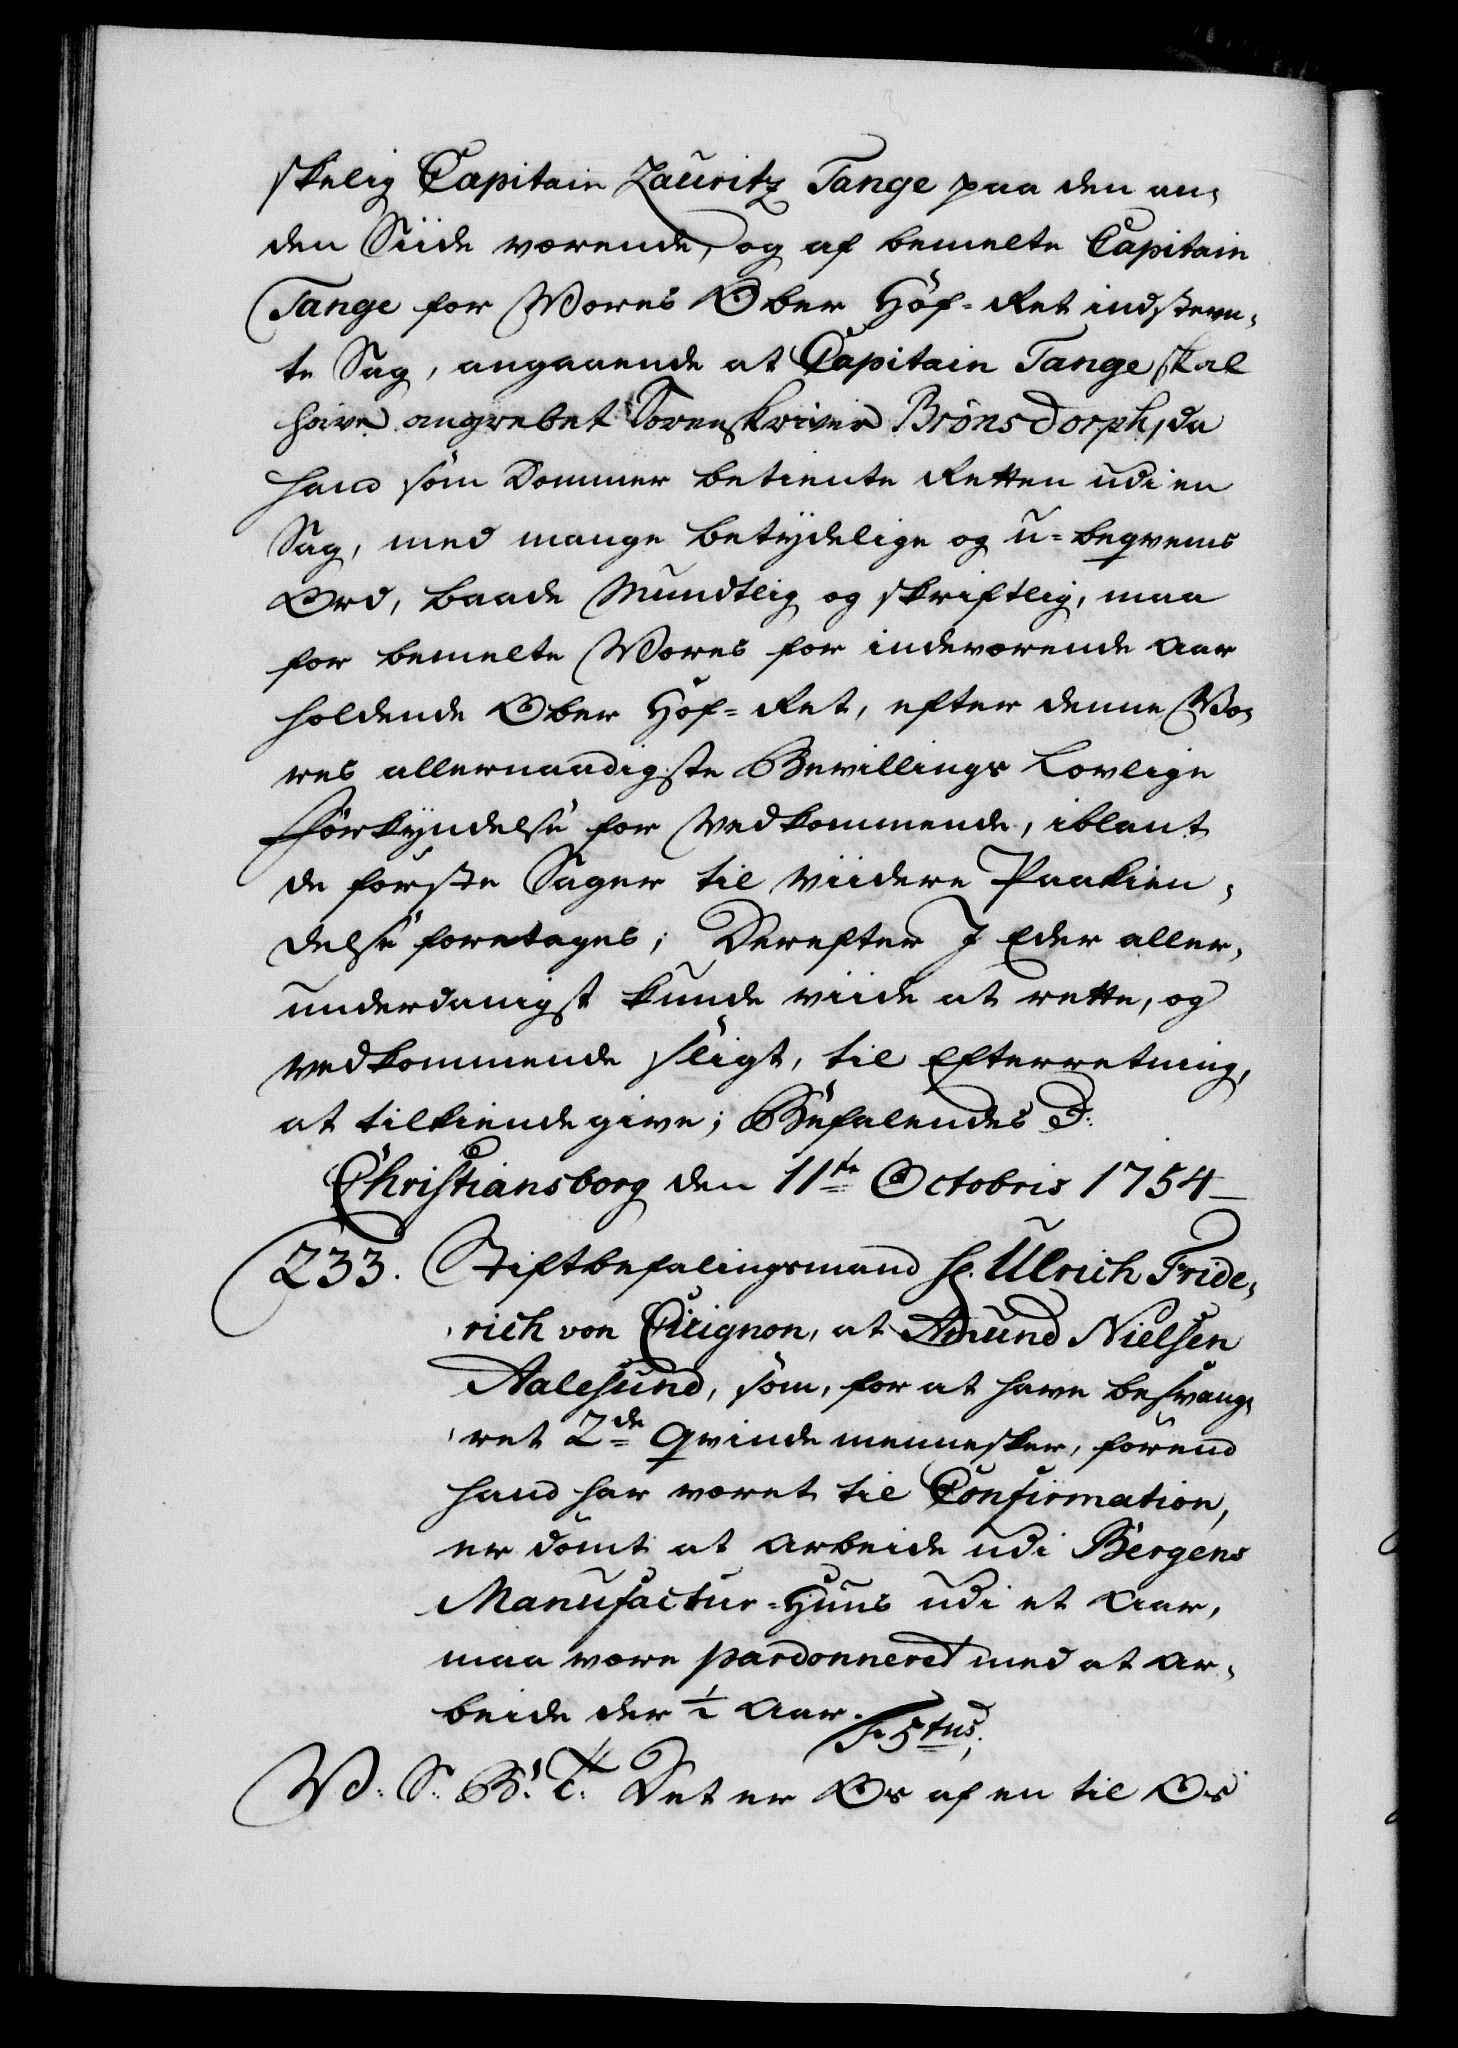 skelig Capitain Lauritz Tange paa den an,
den Siide værende, og af bemelte Capitain
Tange for Vores Ober Hof-Ret indstevn,
te Sag, angaaende at Capitain Tange skal
have angrebet Sorenskriver Brönsdorph, da
hand som Dommer betiente Retten udi en
Sag, med mange betydelige og u-beqvems
Ord, baade Mundtlig og skriftlig, maa
for bemelte Vores for indeværende Aar
holdende Ober Hof-Ret, efter denne Vo,
res allernaadigste Bevillings Lovlige
Forkyndelse for Vedkommende, iblant
de förste Sager til Viidere Paakien,
delse foretages; Derefter I Eder aller,
underdanigst kunde viide at rette, og
vedkommende sligt, til Efterretning,
at tilkiendegive; Befalendes D:
Christiansborg den 11te Octobris 1754
233. Stiftbefalingsmand Hr. Ulrich Fride,
rich von Cicignon, at Amund Nielsen
Aalesund, som, for at have besvang,
ret 2de Qvindemennesker, förend
hand har været til Confirmation,
er dömt at arbeide udi Bergens
Manufactur-Huus udi et Aar,
maa være pardonneret med at ar,
beide der ½ Aar.
S. 5tus.
V: S: B: T: Det er Os af en til Os